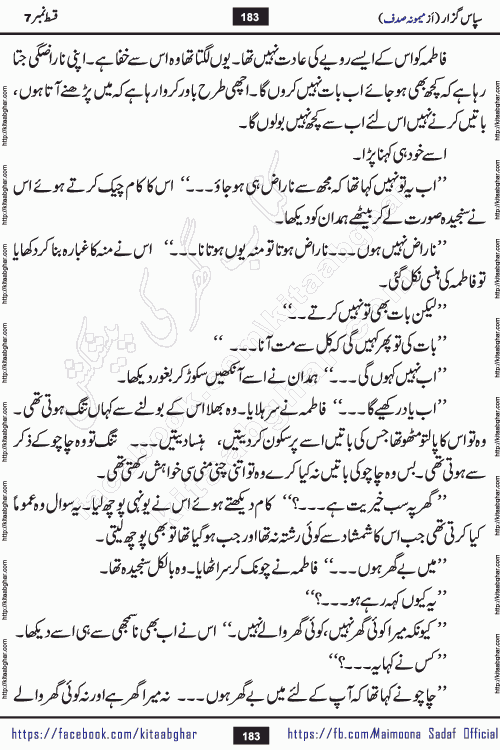 سپاس گزار (از میمونہ صدف) 183 قسط نمبر 7
فاطمہ کو اس کے ایسے رویے کی عادت نہیں تھا۔ یوں لگتا تھا وہ اس سے خفا ہے۔ اپنی ناراضگی جتا
رہا ہے کہ کچھ بھی ہو جائے اب بات نہیں کروں گا۔ اچھی طرح باور کروا رہا ہے کہ میں پڑھنے آتا ہوں،
باتیں کرنے نہیں اس لئے اب سے کچھ نہیں بولوں گا۔
اسے خود ہی کہنا پڑا۔
’’اب یہ تو نہیں کہا تھا کہ مجھ سے ناراض ہی ہو جاؤ۔۔۔‘‘ اس کا کام چیک کرتے ہوئے اس
نے سنجیدہ صورت لے کر بیٹھے ہمدان کو دیکھا۔
’’ناراض نہیں ہوں۔۔۔ناراض ہوتا تو منہ یوں ہوتا نا۔۔۔‘‘ اس نے منہ کا غبارہ بنا کر دکھایا
تو فاطمہ کی ہنسی نکل گئی۔
’’لیکن بات بھی تو نہیں کرتے۔۔‘‘
’’بات کی تو پھر کہیں گی کہ کل سے مت آنا۔۔۔‘‘
’’اب نہیں کہوں گی۔۔۔‘‘ ہمدان نے اسے آنکھیں سکوڑ کر بغور دیکھا۔
’’اب یاد رکھیے گا۔۔۔‘‘ فاطمہ نے سر ہلایا۔ وہ بھلا اس کے بولنے سے کہاں تنگ ہوتی تھی۔
وہ تو اس کا پالتو مٹھو تھا جس کی باتیں اسے پر سکون کر دیتیں، ہنسا دیتیں۔۔۔ تنگ تو وہ چاچو کے ذکر
سے ہوتی تھی۔ بس وہ چاچو کی باتیں نہ کیا کرے وہ تو اتنی چنی منی سی خواہش رکھتی تھی۔
’’گھر پہ سب خیریت ہے۔۔۔؟‘‘ کام دیکھتے ہوئے اس نے یونہی پوچھ لیا۔ یہ سوال وہ عموماً
کیا کرتی تھی جب اس کا شمشاد سے کوئی رشتہ نہ تھا اور جب ہو گیا تھا تو بھی پوچھ لیتی۔
’’میں بے گھر ہوں۔۔۔‘‘ فاطمہ نے چونک کر سر اٹھایا۔ وہ بالکل سنجیدہ تھا۔
’’یہ کیوں کہہ رہے ہو۔۔۔؟‘‘
’’کیونکہ میرا کوئی گھر نہیں، کوئی گھر والے نہیں۔‘‘ اس نے اب بھی ناسمجھی سے ہی اسے دیکھا۔
’’کس نے کہا یہ۔۔۔؟‘‘
’’چاچو نے کہا تھا کہ آپ کے لئے میں بے گھر ہوں۔۔۔ نہ میرا گھر ہے اور نہ کوئی گھر والے
https://facebook.com/kitaabghar 183 https://fb.com/Maimoona Sadaf Official
http://kitaabghar.com